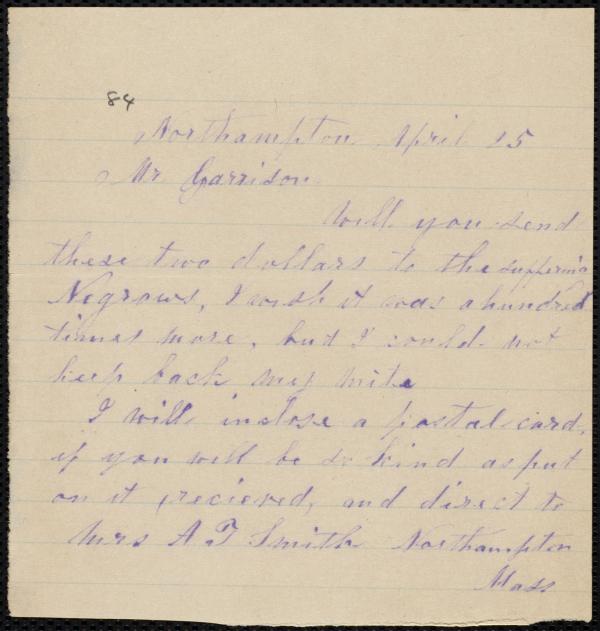 84
Northampton April 25
Mr Garrison
Will you send
these two dollars to the suffering
Negrows, I wish it was a hundred
times more, but I could not
keep back my mite
I will inclose a postal card,
if you will be so kind as put
on it recieved, and direct to
Mrs A T Smith Northampton
Mass